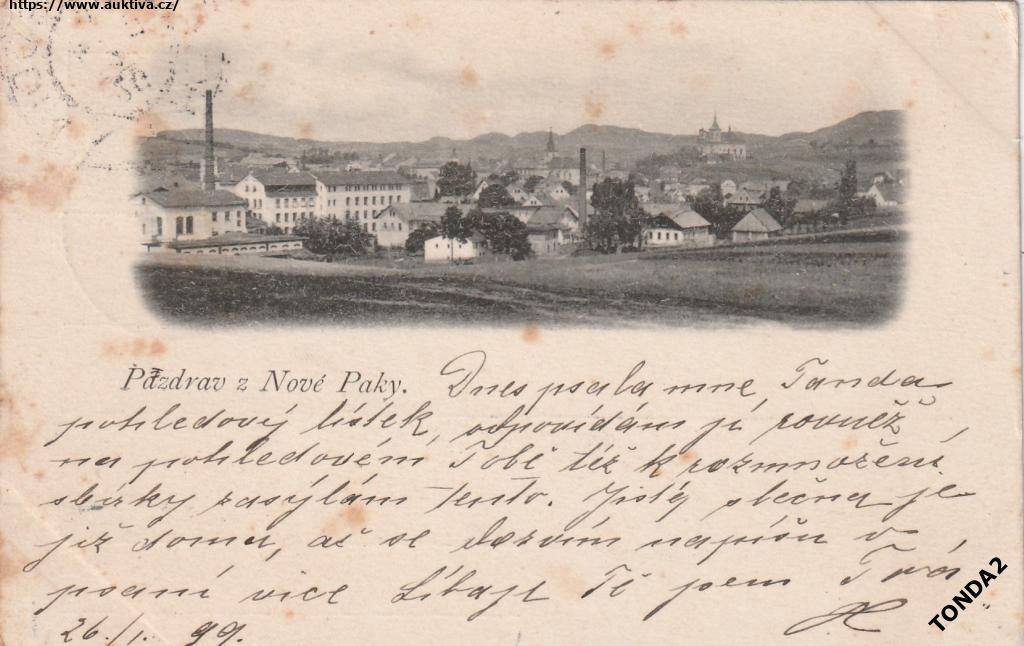 https://www.auktiva.cz/
Pozdrav z Nové Paky.
Dnes psala mne Fanda
pohledový lístek, odpovídám jí rovněž
na pohledovém Tobě též k rozmnožení
sbírky zasýlám tento. Jistá slečna je
již doma, až se dozvím napíšu v
psaní více Líbajc Tě jsem Tvá
26./1. 99.
TONDA2